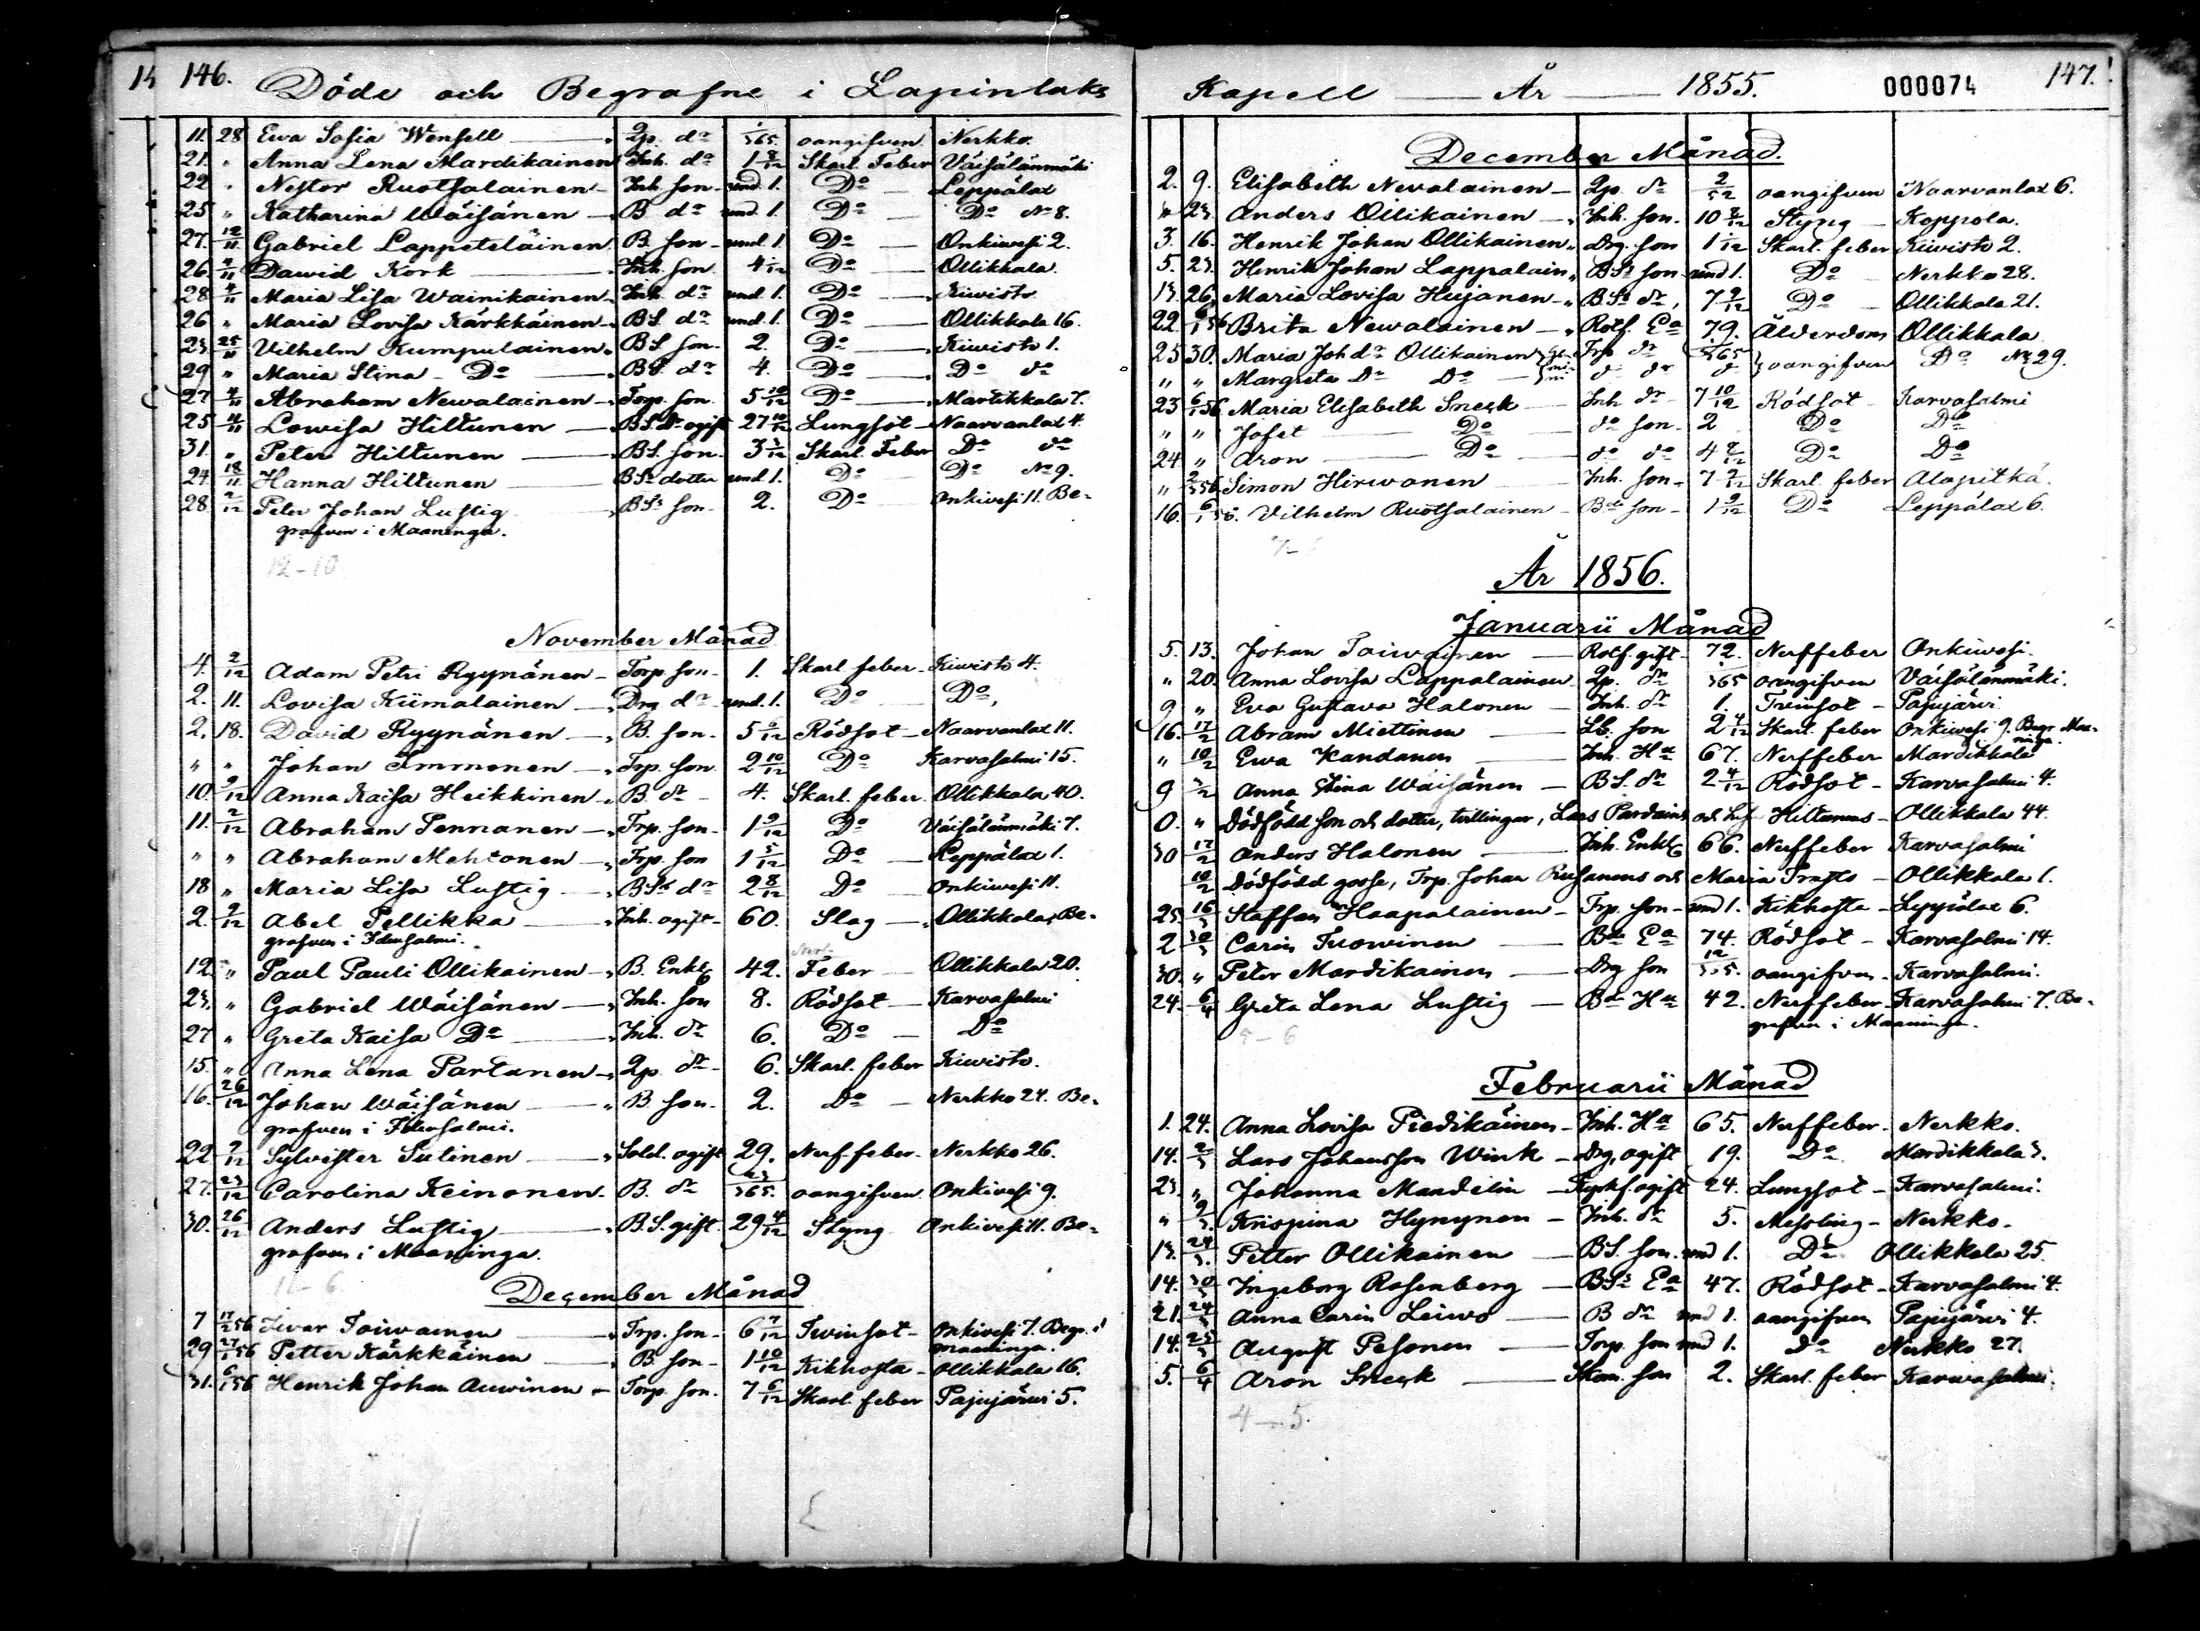 146. Döde och Begrafne i Lapinlaks
11. 28 Ewa Sofia Wensell Lp. dr 1/365 oangifven Nerkko.
21. " Anna Lena Mardikainen Inh. dr 1 8/12 Skarl. Feber Väisälänmäki
22 " Nestor Ruotsalainen Inh. son und. 1. Do Leppälax
25 " Katharina Wäisänen B. dr und. 1. Do Do No 8.
27. 12/11 Gabriel Lappeteläinen B. son und. 1. Do Onkiwesi 2.
26. 4/11 Dawid Kork Inh. son 4 1/12 Do Ollikkala.
28 4/11 Maria Lisa Wainikainen Inh. dr und. 1. Do Kiwistö
26 " Maria Lovisa Kärkkäinen BS. dr und. 1. Do Ollikkala 16.
23 25/11 Vilhelm Kumpulainen BS son 2. Do Kiwistö 1.
29 " Maria Stina Do BS. dr 4. Do Do do
27 4/11 Abraham Newalainen Torp. son 5 10/12 Do Martikkala 7.
25 11/11 Lowisa Hiltunen BS. Dr ogift 27 10/12 Lungsot Naarvanlax 4.
31. " Peter Hiltunen BS. son 3 5/12 Skarl. Feber Do do
24. 18/11 Hanna Hiltunen BSs dotter und 1. Do Do No 9.
28 2/12 Peter Johan Lustig BSs son 2. Do Onkivesi 11. Be-
grafven i Maaninga.
12-10
November Månad
4. 2/12 Adam Petri Ryynänen Torp son 1. Skarl. feber Kiwistö 4.
2. 11. Lovisa Kiimalainen Drg dr und. 1. Do Do,
2. 18. David Ryynänen B. son 5 6/12 Rödsot Naarvanlax 11.
" " Johan Immonen Trp. son 2 10/12 Do Karvasalmi 15.
10. 9/12 Anna Kaisa Heikkinen B. dr 4. Skarl. feber Ollikkala 40.
11. 2/12 Abraham Pennanen Trp. son 1 9/12 Do Väisälänmäki 7.
" " Abraham Mehtonen Trp. son 1 5/12 Do Leppälax 1.
18 " Maria Lisa Lustig BSs dr 2 8/12 Do Onkiwesi 11.
2. 9/12 Abel Pellikka Inh. ogift 60. Slag Ollikkala, Be-
grafven i Idensalmi.
12 " Paul Pauli Ollikainen B. Enkl. 42. Feber Ollikkala 20.
23. " Gabriel Wäisänen Inh. son 8. Rödsot Karvasalmi
27 " Greta Kaisa Do Inh. dr 6. Do Do
15. " Anna Lena Partanen Lp dr 6. Skarl. feber Kiwistö.
16. 26/12 Johan Wäisänen B. son 2. Do Nerkko 24. Be-
grafven i Idensalmi.
22 2/12 Sylvester Sutinen Sold. ogift 29. Nerffeber Nerkko 26.
27. 23/12 Carolina Keinonen B. dr 23/365. oangifven Onkivesi 9.
30. 26/12 Anders Lustig B.S. gift 29 4/12 Styng Onkivesi 11. Be-
grafven i Maaninga.
December Månad
7 17/2 56 Iwar Toiwainen Trp. son 6 7/12 Twinsot Onkivesi 7. Begr. i
Maaninga.
29 27/1 56 Petter Kärkkäinen B. son 1 10/12 Kikhosta Ollikkala 16.
31. 6/1 56 Henrik Johan Auvinen Torp. son 7 6/12 Skarl. feber Pajujärvi 5.
Kapell År 1855. 000074 147.
December Månad.
2. 9. Elisabeth Nevalainen Lp. dr 2/52 oangifven Naarvanlax 6.
" 23. Anders Ollikainen Inh. son 10 8/12 Styng Koppola.
3. 16. Henrik Johan Ollikainen Drg. son 1 1/12 Skarl. feber Kiwistö 2.
5. 23. Henrik Johan Lappalain BSs son und 1. Do Nerkko 28.
13. 26. Maria Lovisa Hujanen BSs dr 7 9/12 Do Ollikkala 21.
22 6/1 56 Brita Newalainen Rotf. Ea 79. Ålderdom Ollikkala
25 30. Maria Joh dr Ollikainen Trp dr /365 oangifven Do No 29.
" " Margreta Do Do do dr do
23 6/1 56 Maria Elisabeth Sneck Inh dr 7 10/12 Rödsot Karvasalmi
" " Jafet Do do son 2 Do Do
24 " Aron Do do do 4 8/12 Do Do
" 2/3 56 Simon Hirvonen Inh. son 7 2/12 Skarl. feber Alapitkä.
16. 6/1 56. Vilhelm Ruotsalainen Bde son 1 9/12 Do Leppälax 6.
År 1856.
Januarii Månad
5. 13. Johan Toiwainen Rotf. gift 72. Nerffeber Onkiwesi.
" 20. Anna Lovisa Lappalainen Lp. dr /365 oangifven Väisälänmäki.
9 " Eva Gustava Halonen Inh. dr 1. Twinsot Pajujärvi
16. 17/2 Abram Miettinen Lb. son 2 4/12 Skarl. feber Onkiwesi 9. Begr. Maa-
ninga.
" 10/2 Ewa Kandanen Inh. Ha 67. Nerffeber Mardikkala
9 3/2 Anna Stina Wäisänen BS. dr 2 4/12 Rödsot Karvasalmi 4.
0. " Dödfödd son och dotter, tvillingar, Lars Pardains och Hiltunens Ollikkala 44.
30 17/2 Anders Halonen Inh. Enkl. 66. Nerffeber Karvasalmi
10/2 Dödfödd gosse, Trp. Johan Rusanens och Maria Ollikkala 1.
25 16/3 Staffan Haapalainen Trp. son und 1. Kikhosta Leppälax 6.
2 30/3 Carin Tuovinen Bde Ea 74. Rödsot Karvasalmi 14.
30. " Peter Mardikainen Drg son 12/365. oangifven Karvasalmi.
24. 6/4 Greta Lena Lustig Bde Ha 42. Nerffeber Karvasalmi 7. Be-
grafven i Maaninga.
5-6
Februarii Månad
1. 24. Anna Lovisa Piedikäinen Inh. Ha 65. Nerffeber Nerkko.
14. 2/3 Lars Johansson Wink Drg, ogift 19. Do Mardikkala 3.
23. " Johanna Mandelin ogift 24. Lungsot Karvasalmi.
" 9/3 Krispina Hynynen Inh. dr 5. Messling Nerkko.
13. 24/3 Petter Ollikainen BS. son und 1. Do Ollikkala 25.
14. 30/3 Ingeborg Rosenberg BSs Ea 47. Rödsot Karvasalmi 4.
21. 24/3 Anna Carin Leiwo B dr und 1. oangifven Pajujärvi 4.
14. 25/3 August Pesonen Torp. son und 1. Do Nerkko 27.
5. 6/4 Aron Sneck Skom. son 2. Skarl. feber Karvasalmi.
4-5.